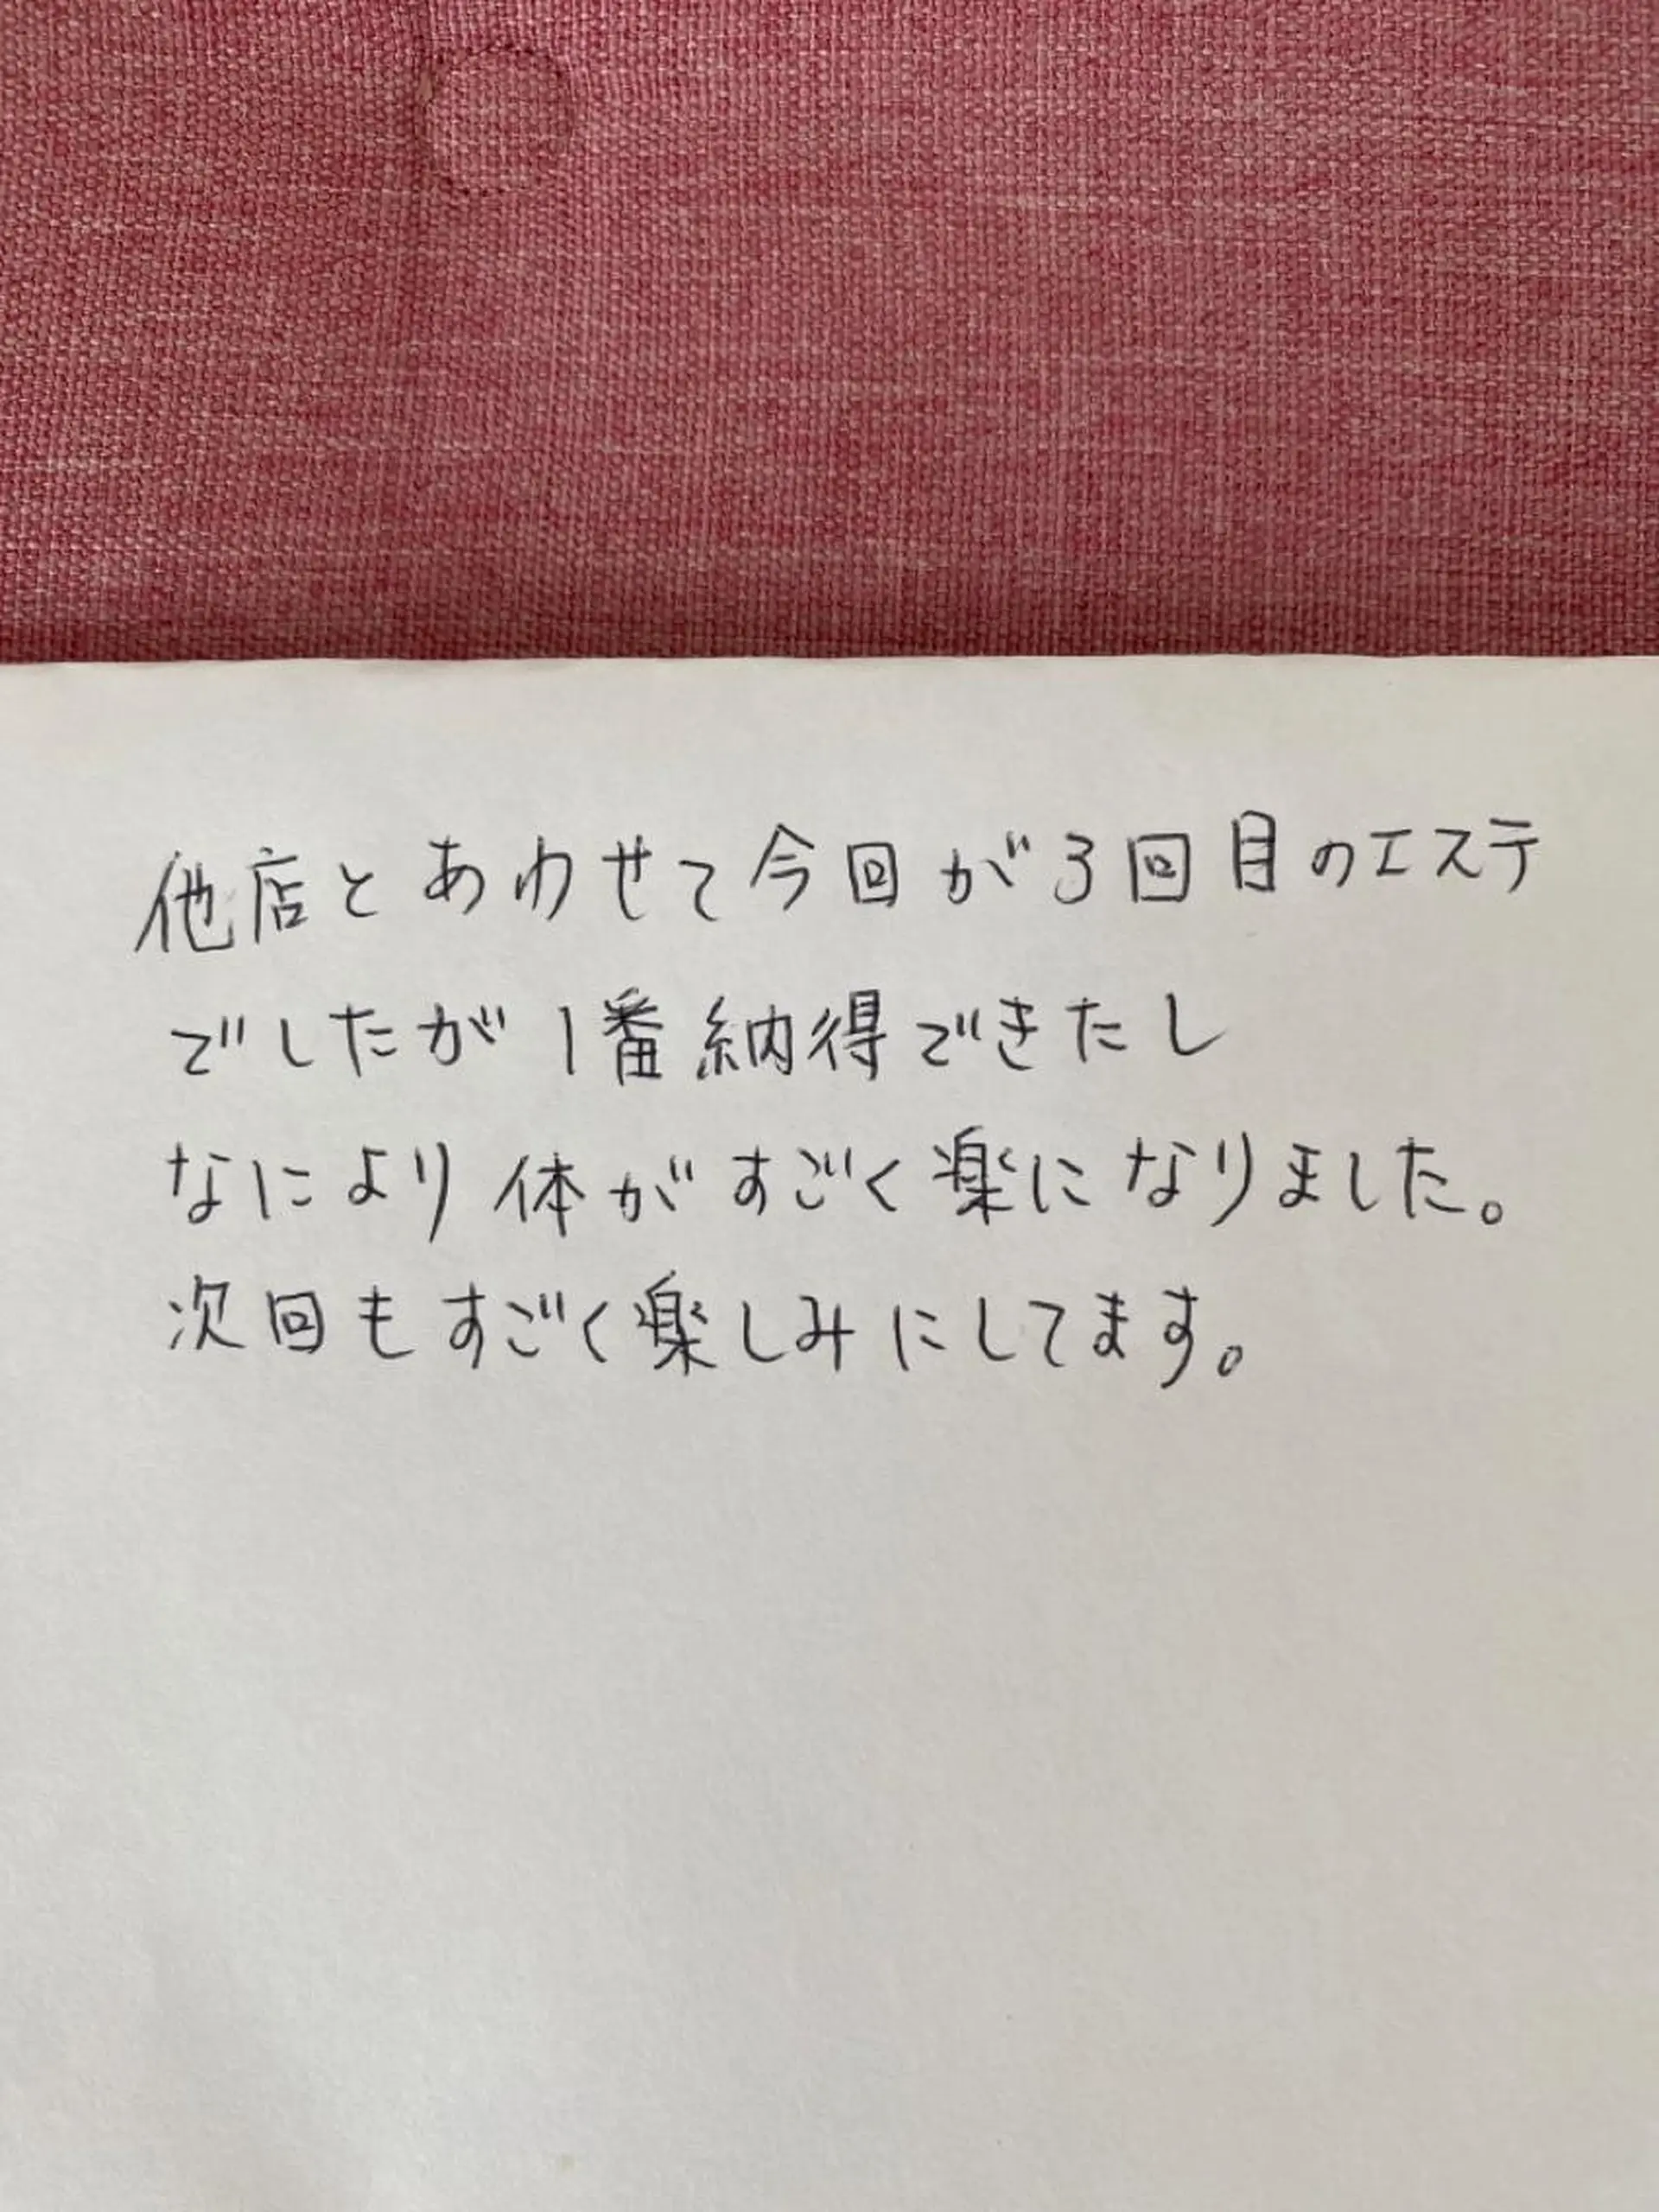 他店とあわせて今回が3回目のエステ
でしたが1番納得できたし
なにより体がすごく楽になりました。
次回もすごく楽しみにしてます。